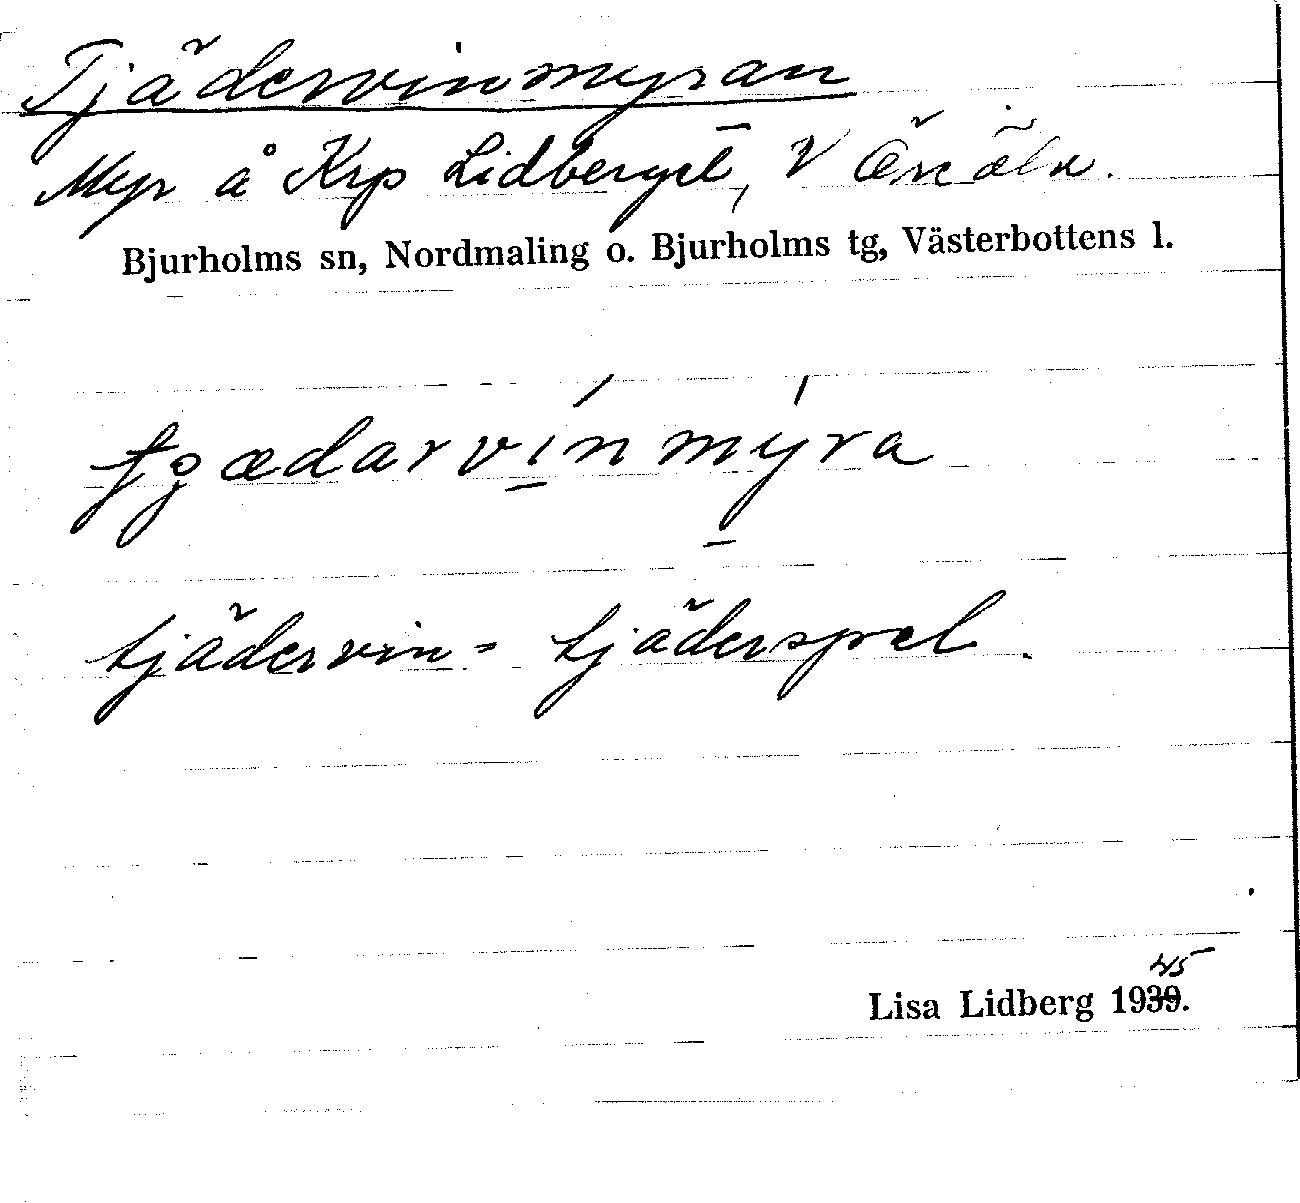 Tjädervinmyran
Myr å Krp Lidberget, V Öreälv.
Bjurholms sn, Nordmaling o. Bjurholms tg, Västerbottens l.
tjædarvínmýra
tjädervin = tjäderspel.
45
Lisa Lidberg 1939.